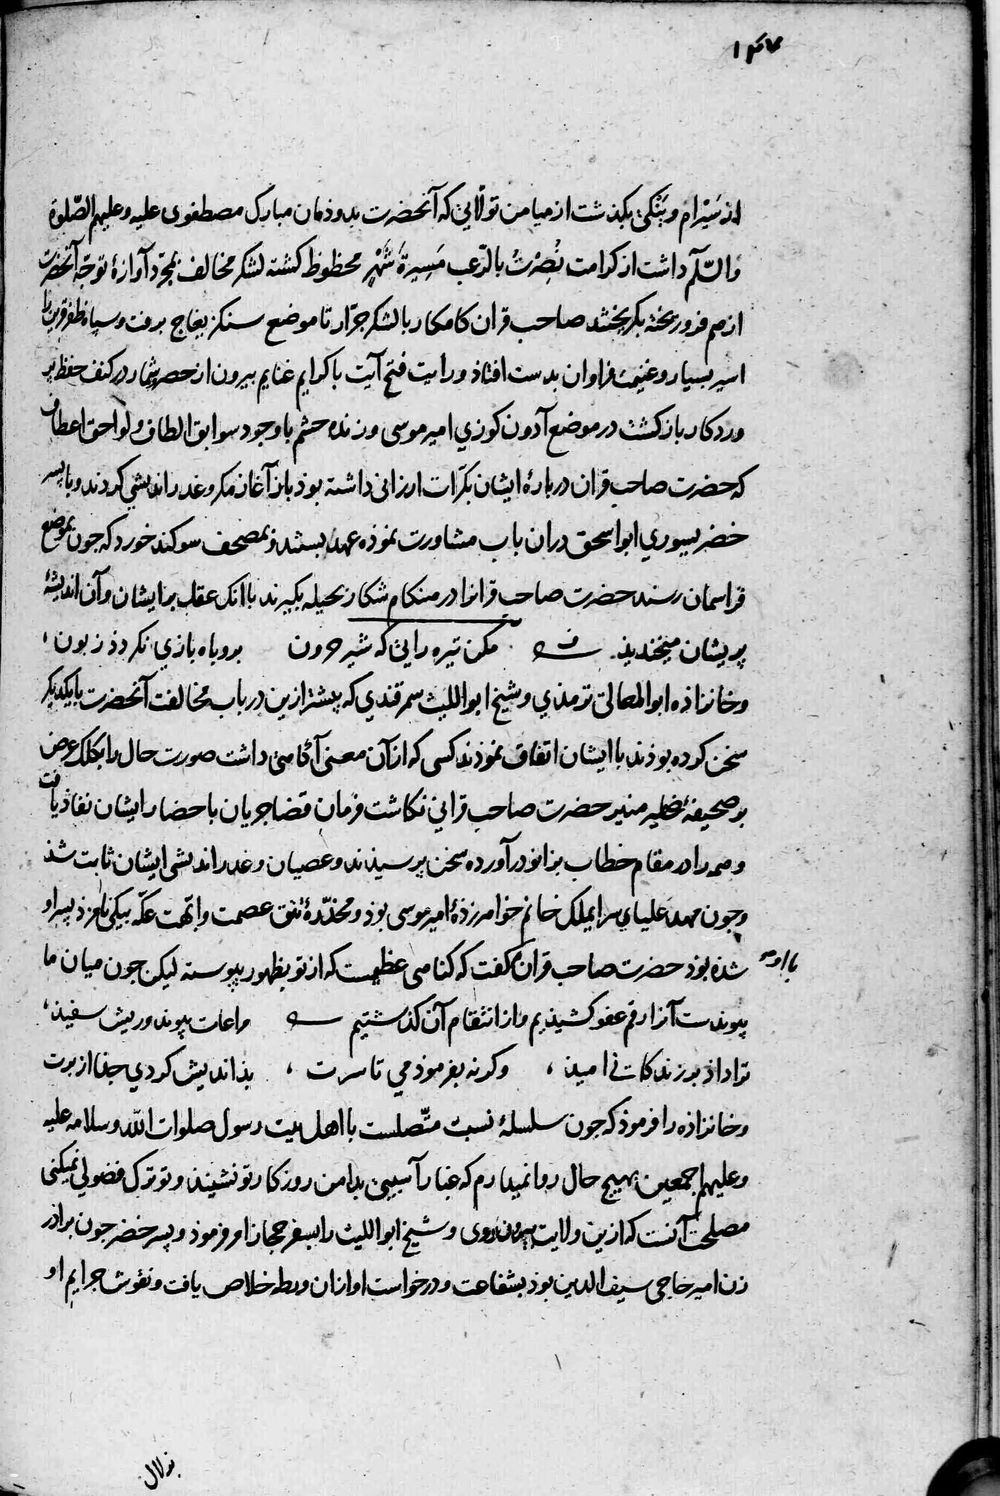 از سیرام وینکی بکذشت از میامن تولائی که آنحضرت بدوذمان مبارک مصطفوی علیه وعلیهم الصّلوة
والسّلام داشت از کرامت نُصِرْتُ بالرّعب مَسیرةَ شَهْرٍ محظوظ کشته لشکر مخالف بمجرّد آوازهٔ توجّه آنحضرت
از هم فروریخته بکریختند صاحب قران کامکار با لشکر جرّار تا موضع سنکریغاج برفت وسپاه ظفر قرین را
اسیر بسیار وغنیمت فراوان بدست افتاذ ورایت فتح آیت با کرایم غنایم بیرون از حصر وشمار در کنف حفظ پر
وردکار بازکشت در موضع آدون کوزی امیر موسی وزنده حشم با وجود سوابق الطاف ولواحق اعطاف
که حضرت صاحب قران دربارهٔ ایشان بکرّات ارزانی داشته بوذ باز آغاز مکر وغدر اندیشی کردند وبا پسر
خضر یسوری ابو اسحق دران باب مشاورت نموذه عهد بستند وبمصحف سوکند خورد که جون بموضع
قراسمان رسند حضرت صاحب قرانرا در هنکام شکار بحیله بکیرند باانک عقل بر ایشان وآن اندیشهٔ
پریشان میخندید مکن تیره رایی که شیر حرون بروباه بازی نکردذ زبون
وخانزاده ابو المعالی ترمذی وشیخ ابو اللیث سمرقندی که پیشتر ازین در باب مخالفت آنحضرت با یکدیکر
سخن کرده بوذند با ایشان اتفاق نموذند کسی که از آن معنی آکاهی داشت صورت حال را بکلک عرض
بر صحیفهٔ ضمیر منیر حضرت صاحب قرانی نکاشت فرمان قضا جریان باحضار ایشان نفاذ یافت
وهمه را در مقام خطاب بزانو درآورده سخن پرسیذند وعصیان وغدر اندیشی ایشان ثابت شذ
وجون مهد علیای سرایملک خانم خواهرزدهٔ امیر موسی بوذ ومخدّرهٔ تتق عصمت وابّهت عکّه بیکی نامزد پسر او
شذه بوذ حضرت صاحب قران کفت که کناهی عظیمست که از تو بظهور پیوسته لیکن جون میان ما
با او
پیوندست آنرا رقم عفو کشیذیم واز انتقام آن کذشتیم مراعات پیوند وریش سفیذ
ترا داذ بر زندکانی امیذ وکرنه بفرموذمی تا سرت بذاندیش کردی جذا از برت
وخانزاذه را فرموذ که جون سلسلهٔ نسبت متّصلست با اهل بیت رسول صلوات الله وسلامه علیه
وعلیهم اجمعین بهیج حال روا نمیدارم که غبار آسیبی بدامن روزکار تو نشیند وتو ترک فضولی نمیکنی
مصلحت آنست که ازین ولایت بیرون روی وشیخ ابو اللیث را بسفر حجاز امر فرموذ وپسر خضر جون براذر
زن امیر حاجی سیف الدین بوذ بشفاعت ودرخواست او ازان ورطه خلاص یافت ونقوش جرایم او
بزلال